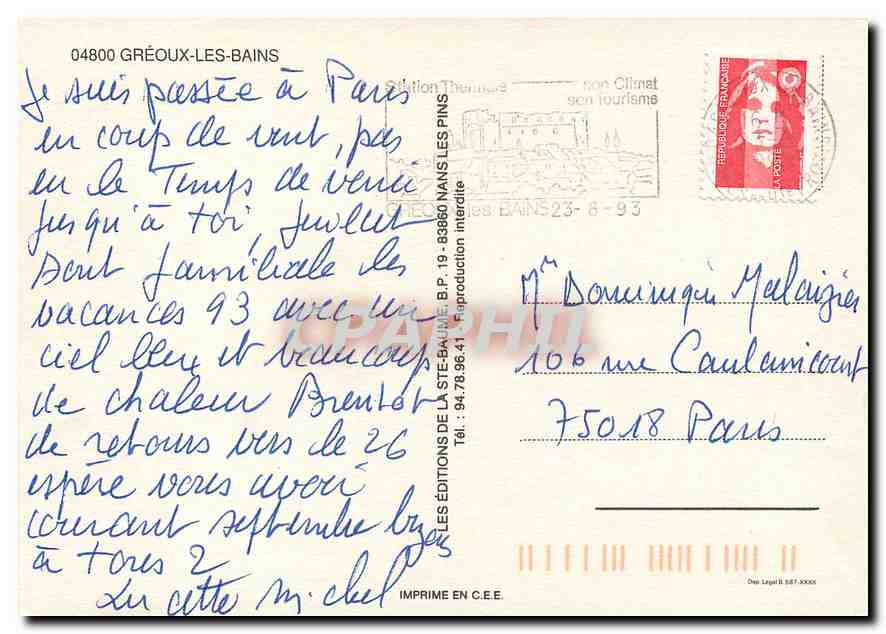 04800 GRÉOUX-LES-BAINS
Je suis passée à Paris
en coup de vent, pas
eu le Temps de venir
jusqu'à toi, Juillet
Août familiale les
vacances 93 avec un
ciel bleu et beaucoup
de chaleur Bientôt
de retours vers le 26
espère vous avoir
courant septembre bizous
à tous 2
michel
Station Thermale son Climat
son Tourisme
GRÉOUX les BAINS 23-8-93
RÉPUBLIQUE FRANÇAISE
LA POSTE
LES ÉDITIONS DE LA STE-BAUME, B.P. 19 - 83860 NANS LES PINS
Tél. : 94.78.96.41 - Reproduction interdite
CPAPHIL
Mr Dominique Malaizier
106 rue Caulaincourt
75018 Paris
IMPRIME EN C.E.E.
Dep. Legal B. 587-XXXX